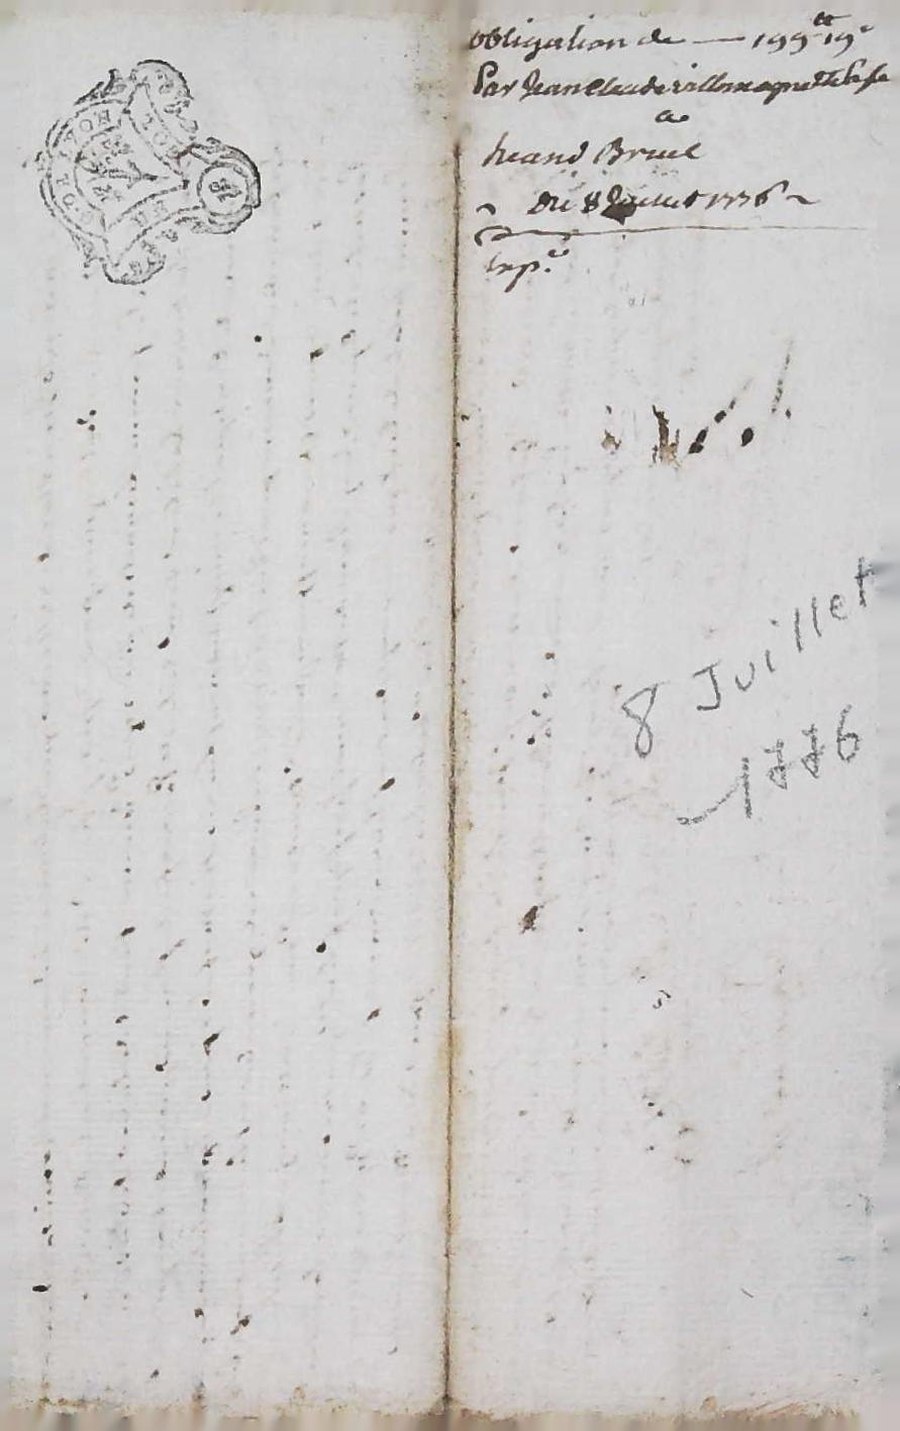 obligation de — 199tt 19s
Par Jean Claude
a
Jean Bruel
Du 8 Juillet 1776
Exp.e
8 Juillet
1776